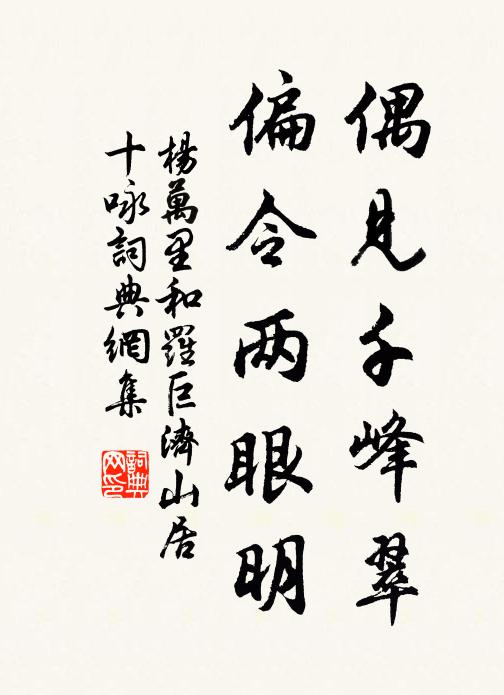 偶見千峰翠
偏令两眼明
楊萬里和羅巨濟山居
十咏詞典網集
詞典网印